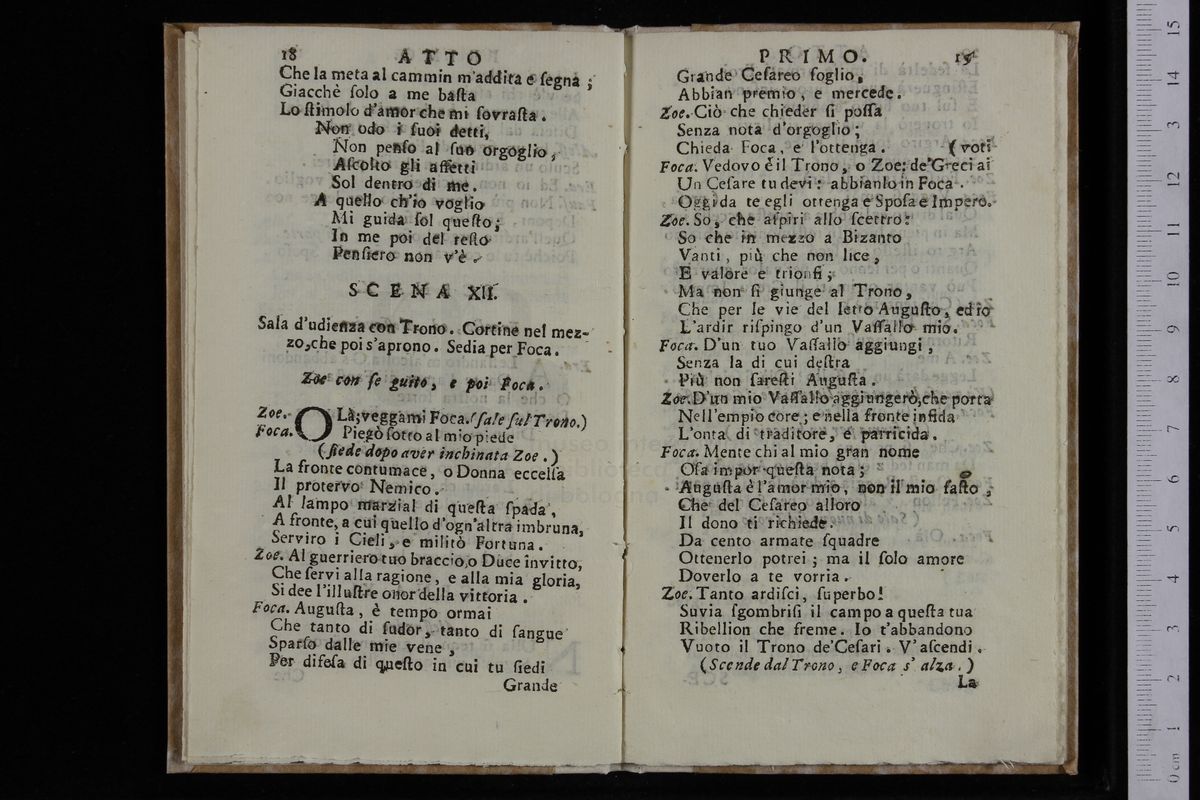 18 ATTO
Che la meta al cammin m'addita e ſegna ;
Giacchè ſolo a me baſta
Lo ſtimolo d'amor che mi ſovraſta .
Non odo i ſuoi detti,
Non penſo al ſuo orgoglio ,
Aſcolto gli affetti
Sol dentro di me.
A quello ch'io voglio
Mi guida ſol queſto ;
In me poi del reſto
Penſiero non v'è .
SCENA XII.
Sala d'udienza con Trono . Cortine nel mez-
zo,che poi s'aprono . Sedia per Foca .
Zoe con ſe guito , e poi Foca .
Zoe. OLà;veggami Foca.(ſale ſul Trono.)
Foca. Piegò ſotto al mio piede
(ſiede dopo aver inchinata Zoe . )
La fronte contumace , o Donna eccelſa
Il protervo Nemico .
Al lampo marzial di queſta ſpada ,
A fronte, a cui quello d'ogn'altra imbruna,
Serviro i Cieli , e militò Fortuna .
Zoe. Al guerriero tuo braccio,o Duce invitto,
Che ſervì alla ragione , e alla mia gloria,
Si dee l'illuſtre onor della vittoria .
Foca. Auguſta , è tempo ormai
Che tanto di ſudor, tanto di ſangue
Sparſo dalle mie vene ,
Per difeſa di queſto in cui tu ſiedi
Grande
PRIMO. 19
Grande Ceſareo ſoglio ,
Abbian premio , e mercede .
Zoe. Ciò che chieder ſi poſſa
Senza nota d'orgoglio ;
Chieda Foca , e l'ottenga . ( voti
Foca. Vedovo è il Trono, o Zoe: de'Greci ai
Un Ceſare tu devi : abbianlo in Foca .
Oggi da te egli ottenga e Spoſa e Impero.
Zoe. So , che aſpiri allo ſcettro:
So che in mezzo a Bizanto
Vanti , più che non lice ,
E valore e trionfi ;
Ma non ſi giunge al Trono ,
Che per le vie del letto Auguſto , ed io
L'ardir riſpingo d'un Vaſſallo mio .
Foca. D'un tuo Vaſſallo aggiungi ,
Senza la di cui deſtra
Più non fareſti Auguſta .
Zoe.D'un mio Vaſſallo aggiungerò,che porta
Nell'empio core ; e nella fronte infida
L'onta di traditore , e parricida .
Foca. Mente chi al mio gran nome
Oſa impor queſta nota ;
Auguſta è l'amor mio , non il mio faſto ,
Che del Ceſareo alloro
Il dono ti richiede .
Da cento armate ſquadre
Ottenerlo potrei ; ma il ſolo amore
Doverlo a te vorria .
Zoe. Tanto ardiſci , ſuperbo!
Suvia ſgombriſi il campo a queſta tua
Ribellion che freme . Io t'abbandono
Vuoto il Trono de'Ceſari . V'aſcendi .
( Scende dal Trono , e Foca s' alza . )
La